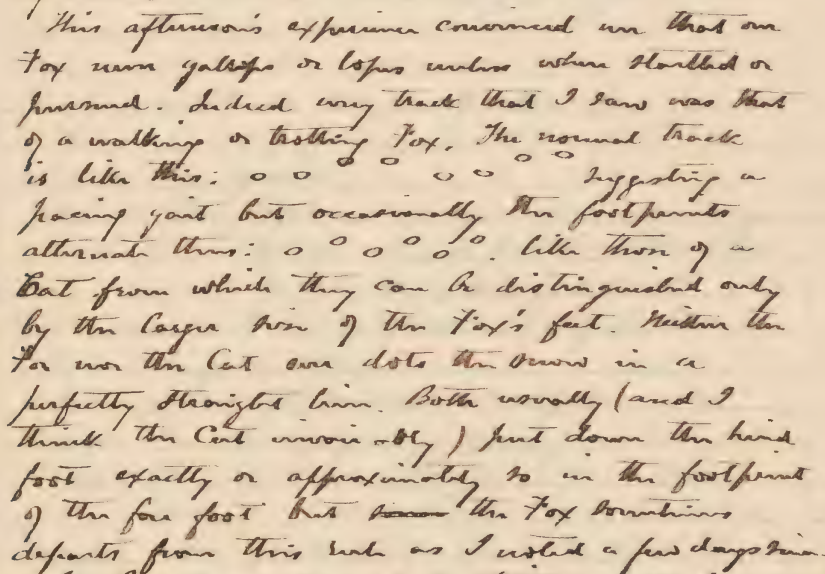 This afternoon's experience convinced me that our
Fox never gallops or lopes unless when startled or
pursued. Indeed every track that I saw was that
of a walking or trotting Fox. The normal track
is like this: o o o o o o o o Suggesting a
pacing gait but occasionally the footprints
alternate thus: o o o o o o. like those of a
Cat from which they can be distinguished only
by the larger size of the Fox's feet. Neither the
Fox nor the Cat ever dots the snow in a
perfectly straight line. Both usually (and I
think the Cat invari-bly) put down the hind
foot exactly or approximately so in the footprint
of the fore foot but the Fox sometimes
departs from this rule as I noted a few days since.